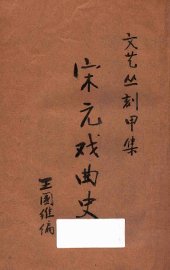 文艺丛刻甲集
宋元戏曲史
王国维编